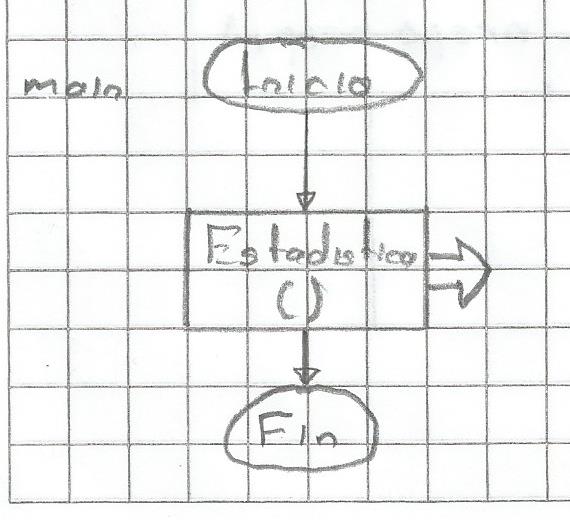 main
Inicio
Estadistica
()
Fin